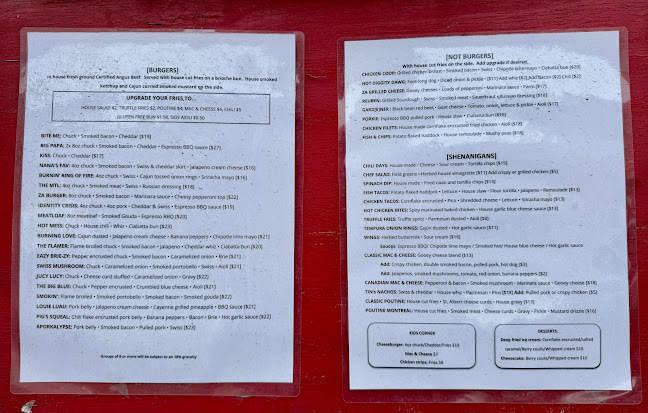 [BURGERS]
In house fresh ground Certified Angus Beef. Served with house cut fries on a brioche bun. House smoked
ketchup and Cajun curried smoked mustard on the side.
UPGRADE YOUR FRIES TO...
HOUSE SALAD $2, TRUFFLE FRIES $2, POUTINE $4, MAC & CHEESE $4, CHILI $5
GLUTEN FREE BUN $1.50, SIDE AIOLI $0.50
BITE ME: Chuck • Smoked bacon • Cheddar [$19]
KIS PAPA: 2x 8oz chuck • Smoked bacon • Cheddar • Espresso BBQ sauce [$27]
KISS: Chuck • Cheddar [$17]
NANA'S FAV: 4oz chuck • Smoked bacon • Swiss & cheddar skirt • Jalapeno cream cheese [$16]
BURNIN' RING OF FIRE: 4oz chuck • Swiss • Cajun tossed onion rings • Sriracha mayo [$16]
THE MTL: 4oz chuck • Smoked meat • Swiss • Russian dressing [$18]
ZA BURGER: 8oz chuck • Smoked bacon • Marinara sauce • Cheesy pepperoni top [$22]
IDENTITY CRISIS: 4oz chuck • 4oz pork • Cheddar & Swiss • Espresso BBQ sauce [$19]
MEATLOAF: 8oz meatloaf • Smoked Gouda • Espresso BBQ [$20]
HOT MESS: Chuck • House chili • Whiz • Ciabatta bun [$23]
BURNING LOVE: Cajun dusted • Jalapeno cream cheese • Banana peppers • Chipotle lime mayo [$21]
THE FLAMER: Flame-broiled chuck • Smoked bacon • Jalapeno • Cheddar whiz • Ciabatta bun [$20]
EAZY BRIE-ZY: Pepper encrusted chuck • Smoked bacon • Caramelized onion • Brie [$21]
SWISS MUSHROOM: Chuck • Caramelized onion • Smoked portobello • Swiss • Aioli [$21]
JUCY LUCY: Chuck • Cheese curd stuffed • Caramelized onion • Gravy [$22]
THE BIG BLUE: Chuck • Pepper encrusted • Crumbled blue cheese • Aioli [$21]
SMOKIN': Flame broiled • Smoked portobello • Smoked bacon • Smoked gouda [$22]
LOUIE LUAU: Pork belly • Jalapeno cream cheese • Cayenne grilled pineapple • BBQ sauce [$21]
PIG'S SQUEAL: Chili flake encrusted pork belly • Banana peppers • Bacon • Brie • Hot garlic sauce [$22]
APORKALYPSE: Pork belly • Smoked bacon • Pulled pork • Swiss [$23]
Groups of 8 or more will be subject to an 18% gratuity
[NOT BURGERS]
With house cut fries on the side. Add upgrade if desired.
CHICKEN COUP: Grilled chicken breast • Smoked bacon • Swiss • Chipotle lime mayo • Ciabatta bun [$20]
HOT DIGGITY DAWG: Foot-long dog • Diced onion & pickle • [$11] Add whiz [$2] Add Bacon [$2] Chili [$2]
ZA GRILLED CHEESE: Gooey cheeses • Loads of pepperoni • Marinara sauce • Parm [$17]
REUBEN: Grilled Sourdough • Swiss • Smoked meat • Sauerkraut • Russian Dressing [$18]
GARD(E)NER: Black bean red beet • Goat cheese • Tomato, onion, lettuce & pickle • Aioli [$17]
PORKIE: Espresso BBQ pulled pork • House slaw • Ciabatta bun [$16]
CHICKEN FILETS: House made cornflake encrusted fried chicken • Aioli [$18]
FISH & CHIPS: Potato flaked haddock • House remoulade • Mushy peas [$18]
[SHENANIGANS]
CHILI DAYS: House made • Cheese • Sour cream • Tortilla chips [$15]
CHEF SALAD: Field greens • Herbed house vinaigrette [$11] Add crispy or grilled chicken [$5]
SPINACH DIP: House made • Fried naan and tortilla chips [$14]
FISH TACOS: Potato flaked haddock • Lettuce • House slaw • Flour tortilla • Jalapeno • Remoulade [$13]
CHICKEN TACOS: Cornflake encrusted • Pico • Shredded cheese • Lettuce • Sriracha mayo [$13]
HOT CHICKEN BITES: Spicy marinated baked chicken • House garlic blue cheese sauce [$13]
TRUFFLE FRIES: Truffle spritz • Parmesan dusted • Aioli [$8]
TEMPURA ONION RINGS: Cajun dusted • Hot garlic sauce [$11]
WINGS: Herbed buttermilk • Sour cream [$16]
Sauces: Espresso BBQ/ Chipotle lime mayo / Smoked hex/ House blue cheese / Hot garlic sauce
CLASSIC MAC & CHEESE: Gooey cheese blend [$13]
Add: Crispy chicken, double smoked bacon, pulled pork, hot dog [$3]
Add: Jalapenos, smoked mushrooms, tomato, red onion, banana peppers [$2]
CANADIAN MAC & CHEESE: Pepperoni & bacon • Smoked mushroom • Marinara sauce • Gooey cheese [$18]
TIN'S NACHOS: Swiss & cheddar • House whiz • Parmesan • Pico [$19] Add: Pulled pork or crispy chicken [$5]
CLASSIC POUTINE: House cut fries • St. Albert cheese curds • House gravy [$13]
POUTINE MONTREAL: House cut fries • Smoked meat • Cheese curds • Gravy • Pickle • Mustard drizzle [$16]
KIDS CORNER
Cheeseburger: 4oz chuck/Cheddar/Fries $10
Mac & Cheese $7
Chicken strips: Fries $9
DESSERTS
Deep fried ice cream: Cornflake encrusted/salted
caramel/Berry coulis/Whipped cream $10
Cheesecake: Berry coulis/Whipped cream $10